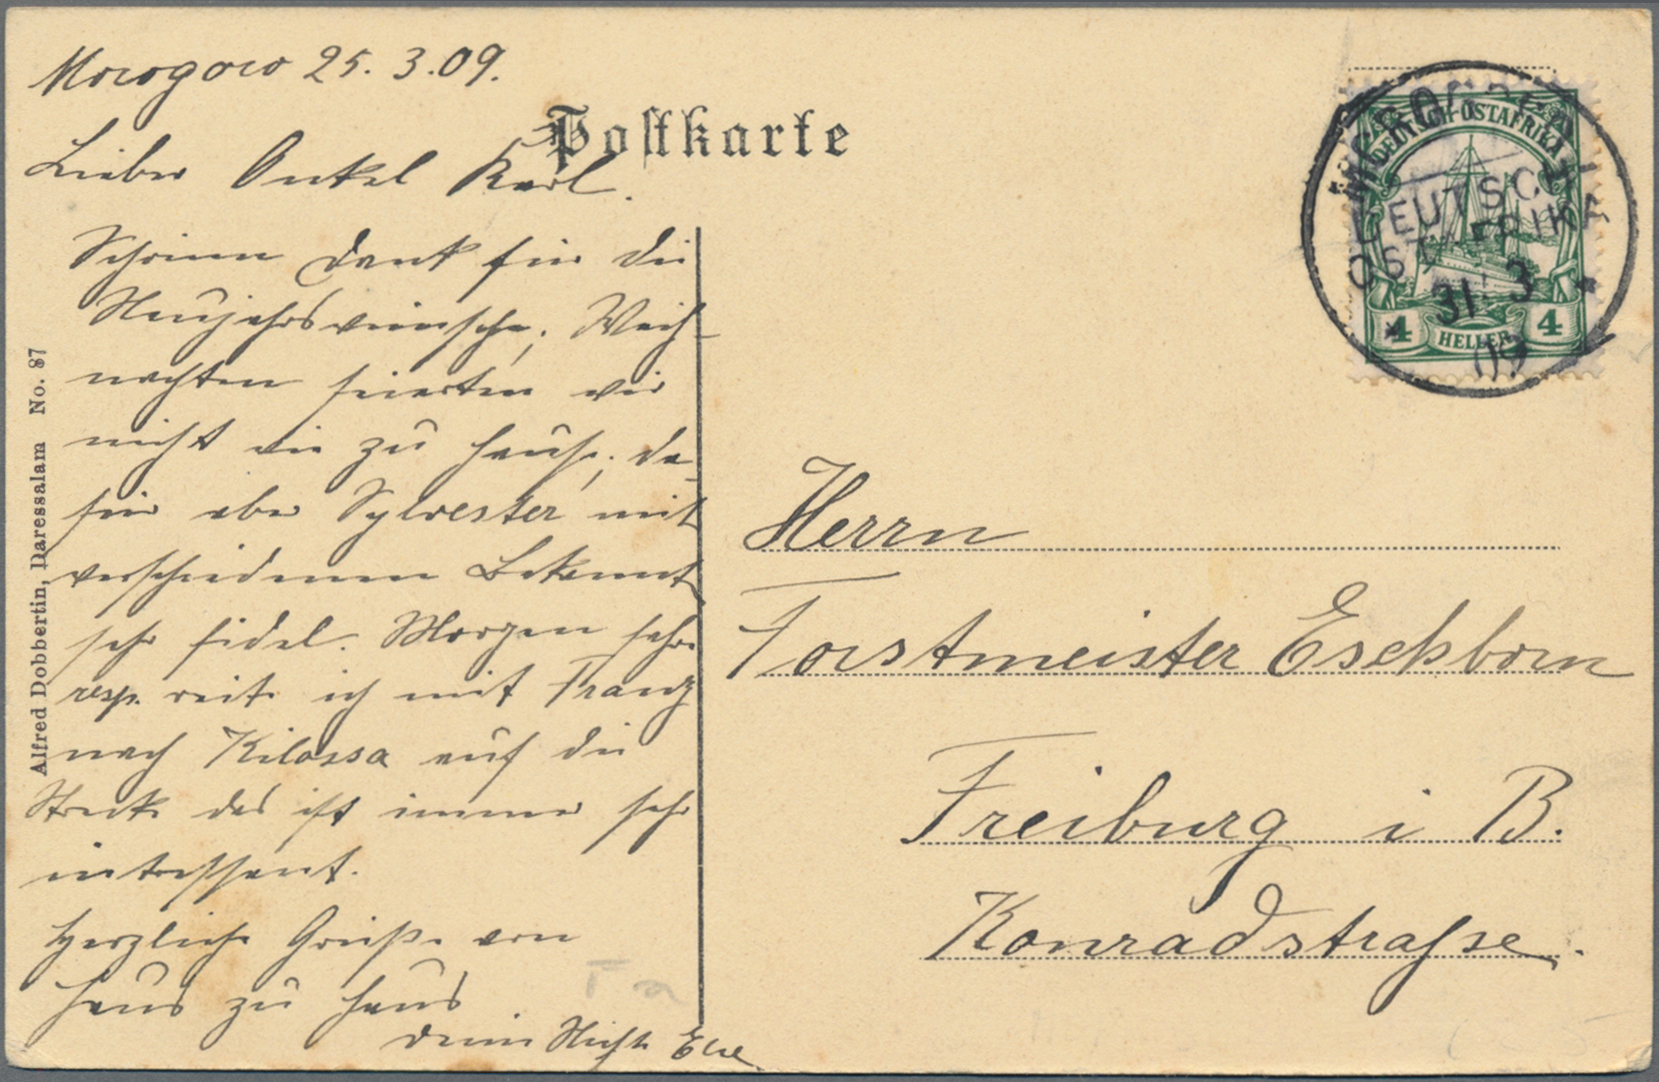 Morogoro 25. 3. 09.
Postkarte
Lieber Onkel Karl.
Schönen Dank für die
Neujahrswünsche, Weih-
nachten feierten wir
nicht wie zu Hause, da-
für aber Sylvester mit
verschiedenen Bekannt.
sehr fidel. Morgen fahre
resp. reite ich mit Franz
nach Kilossa auf die
Strecke das ist immer sehr
intressant.
Herzliche Grüße von
Haus zu Haus
Deine Nichte Else
Alfred Dobbertin, Daressalam No. 87
MOROGORO
DEUTSCH-OSTAFRIKA
DEUTSCH
OSTAFRIKA
31. 3.
09
4 HELLER 4
Herrn
Forstmeister Eschborn
Freiburg i B.
Konradstrasse.